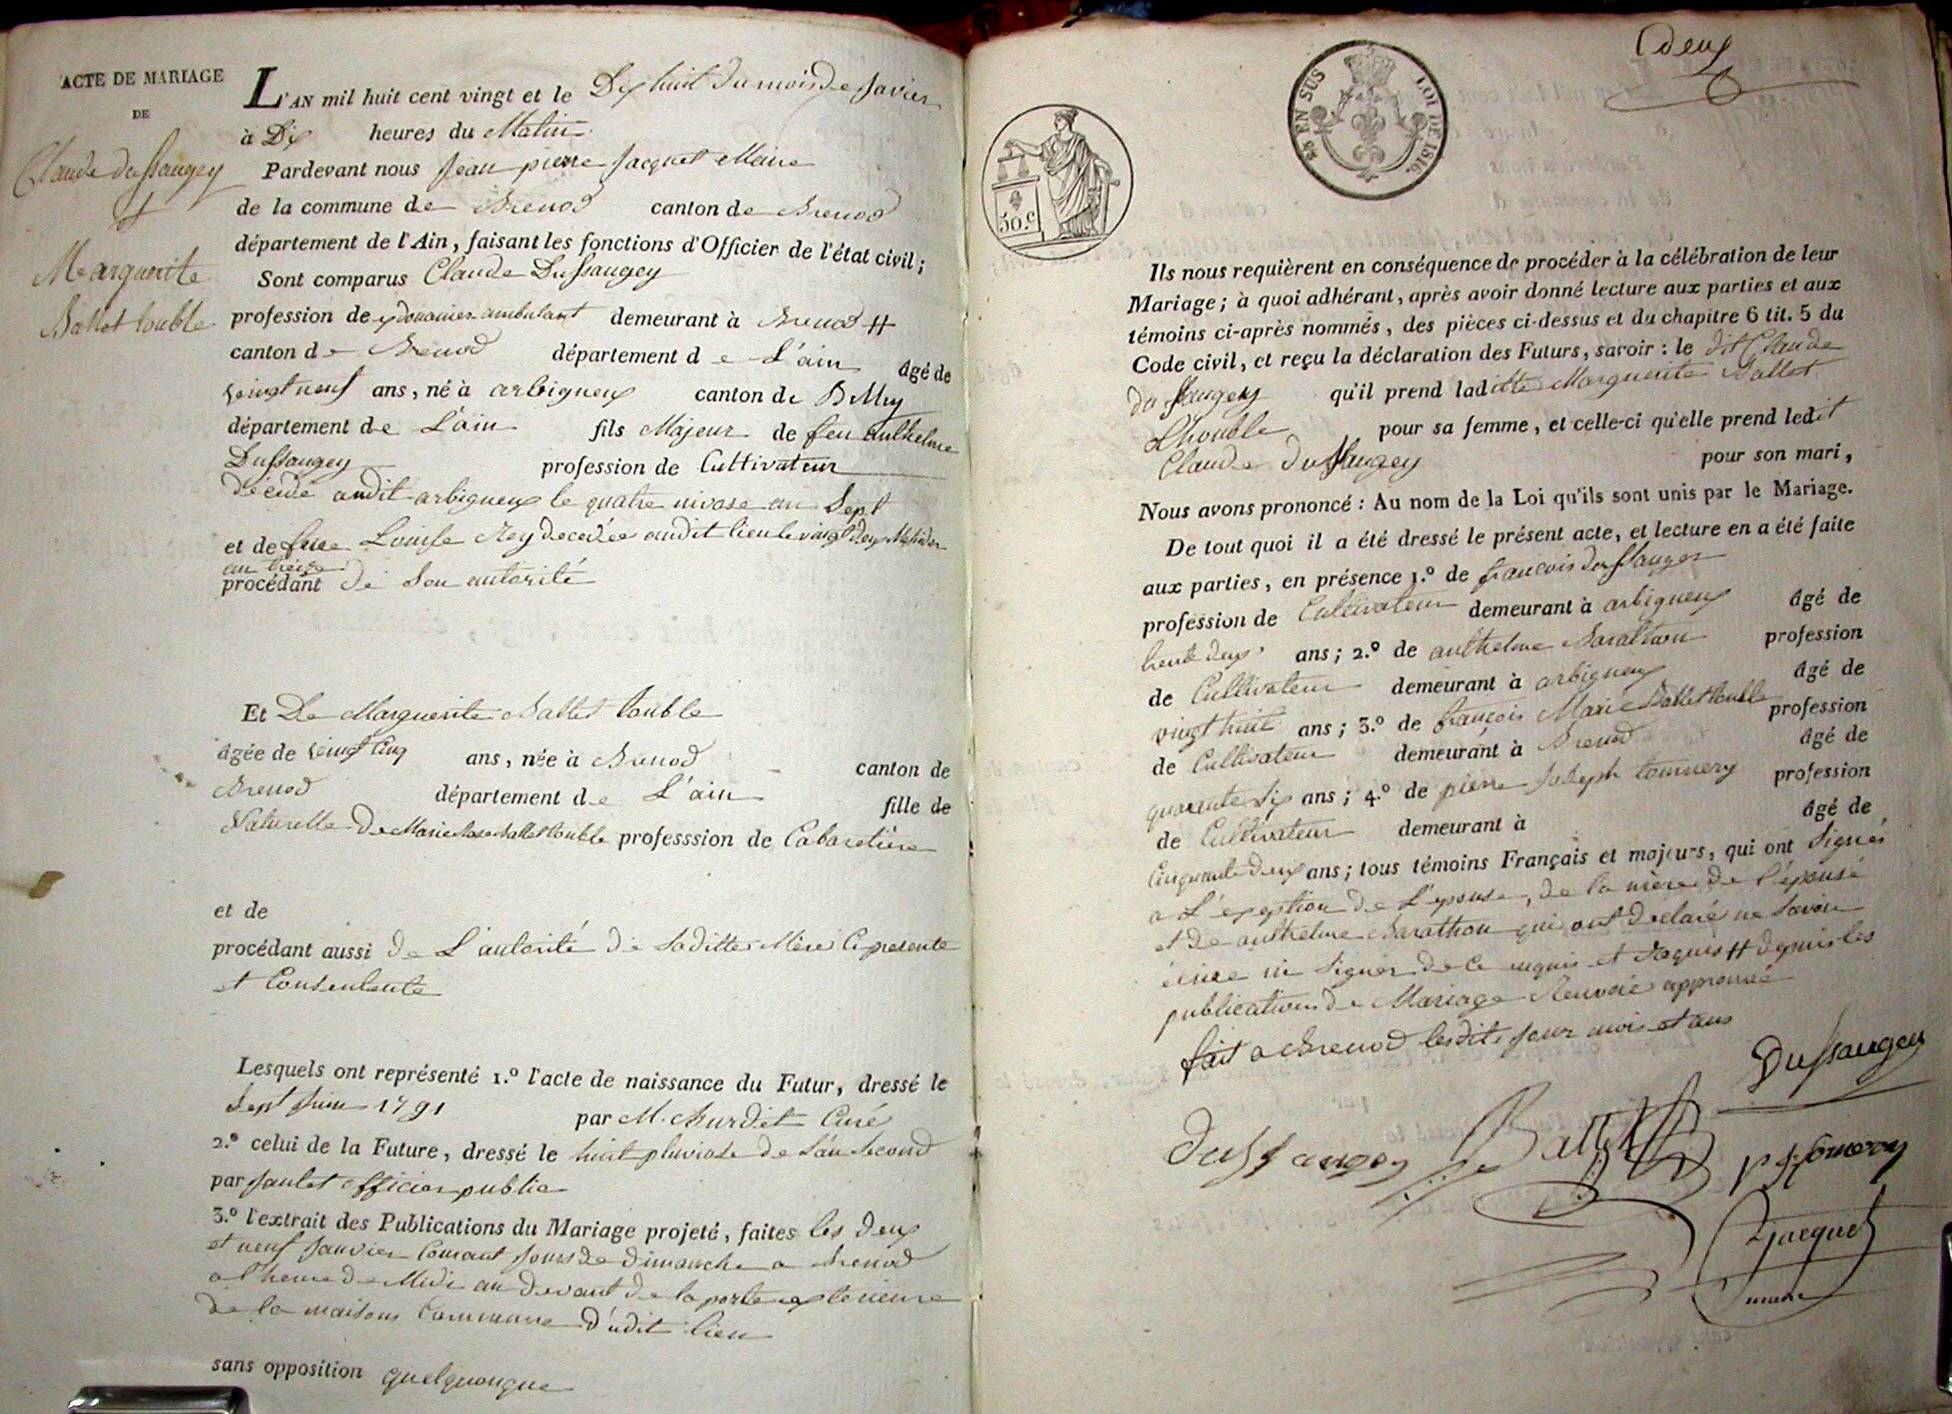 ACTE DE MARIAGE
DE
Claude dussaugey
et
Marguerite
Ballet louble
L'AN mil huit cent vingt et le Dix huit du mois de Javier
à Dix heures du Matin
Pardevant nous Jean pierre Jacquet Maire
de la commune de Brenod canton de Brenod
département de l'Ain, faisant les fonctions d'Officier de l'état civil;
Sont comparus Claude Dussaugey
profession de douanier ambulant demeurant à Brenod #
canton de Brenod département de L'ain âgé de
vingt neuf ans, né à arbigneux canton de Belley
département de L'ain fils Majeur de feu anthelme
Dussaugey profession de Cultivateur
décédé audit arbigneux le quatre nivose an Sept
et de feue Louise Rey decedée audit lieu le vingt deux Messidor
an treize
procédant de Son autorité
Et De Marguerite Ballet louble
âgée de vingt cinq ans, née à Brenod canton de
Brenod département de L'ain fille de
Naturelle De Marie Rose Ballet louble professsion de Cabaretière
et de
procédant aussi de L'autorité de Saditte Mère Ci presente
et Consentente
Lesquels ont représenté 1.º l'acte de naissance du Futur, dressé le
Sept Juin 1791 par M. Burdet Curé
2.º celui de la Future, dressé le huit pluviose de L'an Second
par Jantet officier public
3.º l'extrait des Publications du Mariage projeté, faites les deux
et neuf Janvier Courant Jours de dimanche a Brenod
a l'heure de Midi au devant de la porte exterieure
de la maison Commune dudit lieu
sans opposition quelquonque
deux
50.c
EN SUS
LOI DE 1816.
Ils nous requièrent en conséquence de procéder à la célébration de leur
Mariage; à quoi adhérant, après avoir donné lecture aux parties et aux
témoins ci-après nommés, des pièces ci-dessus et du chapitre 6 tit. 5 du
Code civil, et reçu la déclaration des Futurs, savoir: le dit Claude
dussaugey qu'il prend laditte Marguerite Ballet
Lhouble pour sa femme, et celle-ci qu'elle prend ledit
Claude dussaugey pour son mari,
Nous avons prononcé: Au nom de la Loi qu'ils sont unis par le Mariage.
De tout quoi il a été dressé le présent acte, et lecture en a été faite
aux parties, en présence 1.º de françois dussaugey
profession de Cultivateur demeurant à arbigneux âgé de
trente deux ans; 2.º de anthelme Barathon profession
de Cultivateur demeurant à arbigneux âgé de
vingt huit ans; 3.º de françois Marie Ballet louble profession
de Cultivateur demeurant à Brenod âgé de
quarente Six ans; 4.º de pierre Joseph tournery profession
de Cultivateur demeurant à âgé de
Cinquante deux ans; tous témoins Français et majeurs, qui ont Signés
a L'exeption de L'epouse, de la mère de l'épouse
et de anthelme Barathon qui ont declaré ne Savoir
écrire ni Signer de ce enquis et requis # depuis les
publications de Mariage Renvoie approuvé
fait a Brenod lesdits jour mois et ans
Dussaugey
Dussaugey Ballet
Jacquet
maire